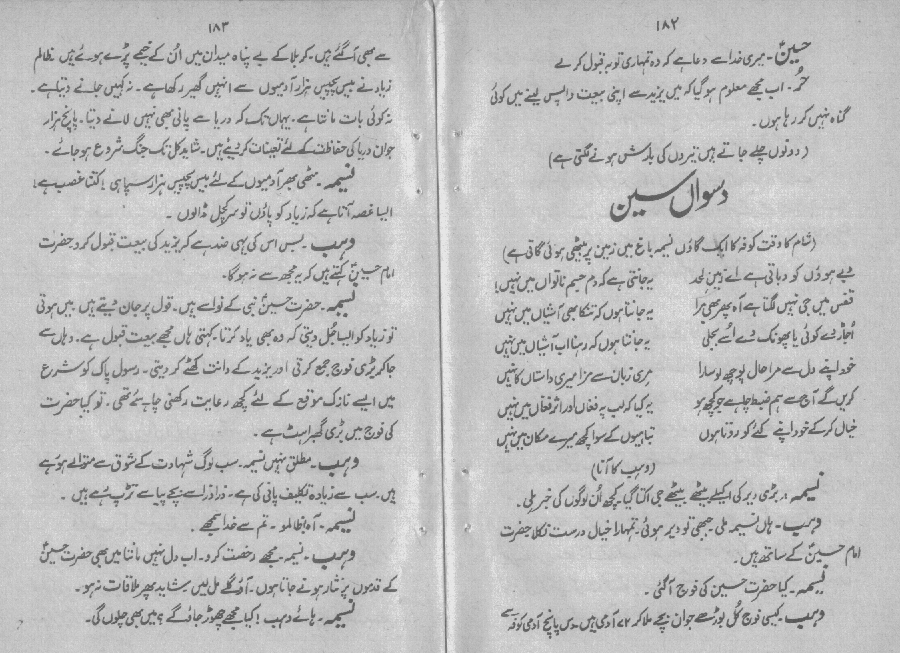 ۱۸۲
حسینؑ۔ میری خدا سے دعا ہے کہ وہ تمہاری توبہ قبول کرے
حُر۔ اب مجھے معلوم ہو گیا کہ میں یزید سے اپنی بیعت واپس لینے میں کوئی
گناہ نہیں کر رہا ہوں۔
(دونوں چلے جاتے ہیں تیروں کی بارش ہونے لگتی ہے)
دسواں سین
(شام کا وقت کوفہ کا ایک گاؤں نسیمہ باغ میں زمین پر بیٹھی ہوئی گاتی ہے)
دبے ہوؤں کو دباتی ہے اے زمین لحد یہ جانتی ہے کہ دم جسم ناتواں میں نہیں
قفس میں جی نہیں لگتا ہے آہ پھر بھی مرا یہ جانتا ہوں کہ تنکا بھی آشیاں میں نہیں
اُجاڑ دے کوئی یا پھونک دے اُسے بجلی یہ جانتا ہوں کہ رہنا اب آشیاں میں نہیں
خود اپنے دل سے مرا حال پوچھ لو سارا مری زبان سے مزا میری داستاں کا نہیں
کریں گے آج سے ہم ضبط چاہے جو کچھ ہو یہ کیا کہ لب پہ فغاں اور اثر فغاں میں نہیں
خیال کر کے خود اپنے کئے کو روتا ہوں تباہیوں کے سوا کچھ میرے مکاں میں نہیں
(وہب کا آنا)
نسیمہ۔ بڑی دیر کی اکیلے بیٹھے بیٹھے جی اکتا گیا۔ کچھ اُن لوگوں کی خبر ملی۔
وہب۔ ہاں نسیمہ ملی۔ جبھی تو دیر ہوئی۔ تمہارا خیال درست نکلا حضرت
امام حسینؑ کے ساتھ ہیں۔
نسیمہ۔ کیا حضرت حسین کی فوج آ گئی۔
وہب۔ کیسی فوج کُل بوڑھے جوان بچے ملا کر ۷۲ آدمی ہیں۔ دس پانچ آدمی کوفہ سے
۱۸۳
سے بھی آ گئے ہیں۔ کربلا کے بے پناہ میدان میں اُن کے خیمے پڑے ہوئے ہیں ظالم
زیاد نے بیس پچیس ہزار آدمیوں سے انہیں گھیر رکھا ہے۔ نہ کہیں جانے دیتا ہے۔
نہ کوئی بات مانتا ہے۔ یہاں تک کہ دریا سے پانی بھی نہیں لانے دیتا۔ پانچ ہزار
جوان دریا کی حفاظت کے لئے تعینات کر دیئے ہیں۔ شاید کل تک جنگ شروع ہو جائے۔
نسیمہ۔ مٹھی بھر آدمیوں کے لئے بیس پچیس ہزار سپاہی! کتنا غضب ہے!
ایسا غصہ آتا ہے کہ زیاد کو پاؤں تو سر کچل ڈالوں۔
وہب۔ بس اس کی یہی ضد ہے کہ یزید کی بیعت قبول کرو حضرت
امام حسینؑ کہتے ہیں کہ یہ مجھ سے نہ ہو گا۔
نسیمہ۔ حضرت حسینؑ نبی کے نواسے ہیں۔ قول پر جان دیتے ہیں۔ میں ہوتی
تو زیاد کو ایسا جُل دیتی کہ وہ بھی یاد کرتا۔ کہتی ہاں مجھے بیعت قبول ہے۔ وہاں سے
جا کر بڑی فوج جمع کرتی اور یزید کے دانت کھٹے کر دیتی۔ رسول پاک کو شرع
میں ایسے نازک موقع کے لئے کچھ رعایت رکھنی چاہیے تھی۔ تو کیا حضرت
کی فوج میں بڑی گھبراہٹ ہے۔
وہب۔ مطلق نہیں نسیمہ۔ سب لوگ شہادت کے شوق سے متوالے ہو رہے
ہیں۔ سب سے زیادہ تکلیف پانی کی ہے۔ ذرا ذرا سے بچے پیاسے تڑپ رہے ہیں۔
نسیمہ۔ آہ! ظالمو۔ تم سے خدا سمجھے۔
وہب۔ نسیمہ۔ مجھے رخصت کرو۔ اب دل نہیں مانتا میں بھی حضرت حسینؑ
کے قدموں پر نثار ہونے جاتا ہوں۔ آؤ گلے مل لیں۔ شاید پھر ملاقات نہ ہو۔
نسیمہ۔ ہائے وہب! کیا مجھے چھوڑ جاؤ گے؟ میں بھی چلوں گی۔